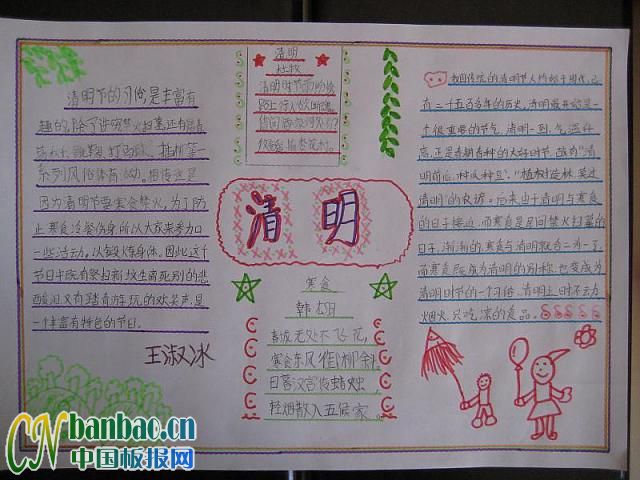 清明节的习俗是丰富有
趣的,除了讲究禁火扫墓,还有踏青
荡秋千、蹴鞠、打马球、插柳等一
系列风俗体育活动。相传这是
因为清明节要寒食禁火,为了防
止寒食冷餐伤身,所以大家来参加
一些活动,以锻炼身体。因此,这个
节日中既有祭扫新坟生离死别的悲
酸泪,又有踏青游玩的欢笑声,是
一个丰富有特色的节日。
王淑冰
清明
杜牧
清明时节雨纷纷
路上行人欲断魂
借问酒家何处有
牧童遥指杏花村。
清 明
寒食
韩翃
春城无处不飞花,
寒食东风御柳斜。
日暮汉宫传蜡烛,
轻烟散入五侯家。
我国传统的清明节大约始于周代,已
有二千五百多年的历史。清明最开始是一
个很重要的节气,清明一到,气温升
高,正是春耕春种的大好时节,故有“清
明前后,种瓜种豆”。“植树造林,莫过
清明”的农谚。后来,由于清明与寒食
的日子接近,而寒食是民间禁火扫墓的
日子,渐渐的,寒食与清明就合二为一了,
而寒食既成为清明的别称,也变成为
清明时节的一个习俗,清明之日不动
烟火,只吃凉的食品。
CN banbao.cn
中国板报网